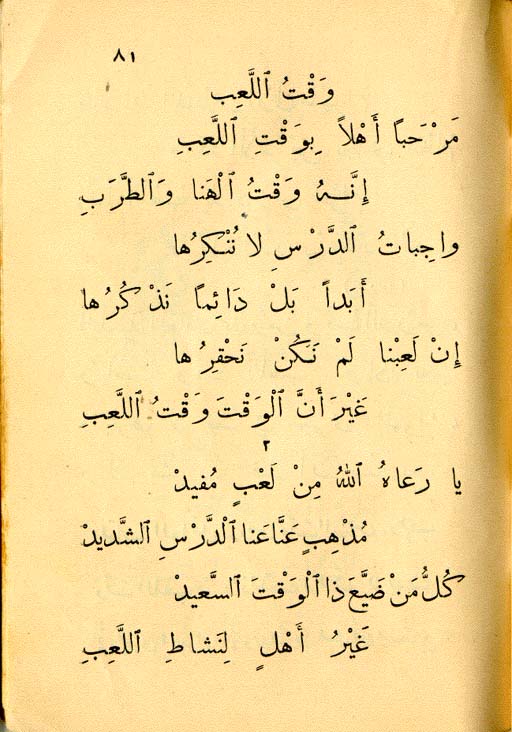 ٨١
وَقْتُ ٱللَّعِبِ
مَرْحَباً أَهْلاً بِوَقْتِ ٱللَّعِبِ
إِنَّـهُ وَقْتُ ٱلْهَنا وَٱلطَّرَبِ
واجِباتُ ٱلدَّرْسِ لا نُنْكِرُها
أَبَداً بَلْ دَائِماً نَذْكُرُها
إِنْ لَعِبْنا لَمْ نَكُنْ نَحْقِرُها
غَيْرَ أَنَّ ٱلْوَقْتَ وَقْتُ ٱللَّعِبِ
٢
يا رَعاهُ ٱللهُ مِنْ لَعْبٍ مُفيدْ
مُذْهِبٍ عَنَّا عَنا ٱلْدَّرْسِ ٱلشَّديدْ
كُلُّ مَنْ ضَيَّعَ ذا ٱلْوَقْتَ ٱلسَّعيدْ
غَيْرُ أَهْلٍ لِنَشاطِ ٱللَّعِبِ